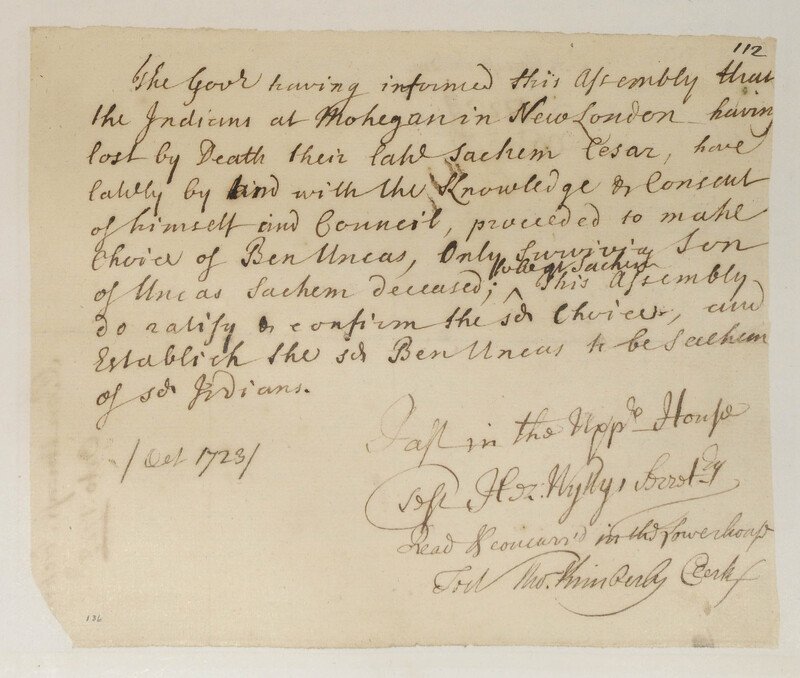 112
The Govr having informed this Assembly that
the Indians at Mohegan in New London having
lost by Death their late Sachem Cesar, have
lately by and with the Knowledge & Consent
of himself and Council, proceeded to make
Choice of Ben Uncas, Only surviving Son
of Uncas Sachem deceased; this Assembly
to be their Sachem
do ratify & confirm the sd Choice, and
Establish the sd Ben Uncas to be Sachem
of sd Indians.
Past in the Uppr House
/ Oct 1723 /
Test Hez: Wyllys Secretry
Read & concurr'd in the Lower house
Test Tho. Kimberly Clerk
126